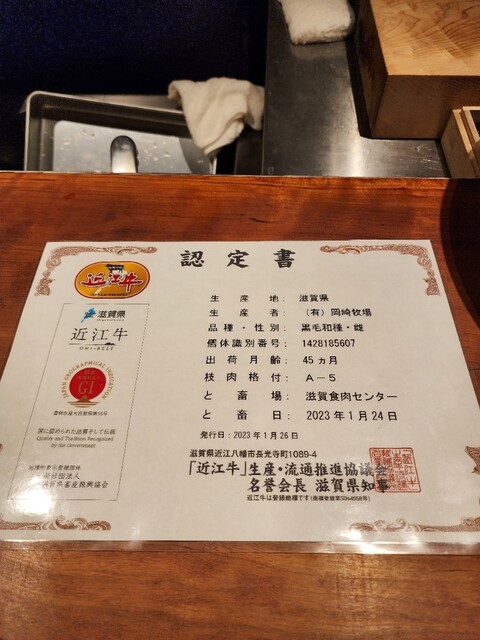 認定書
近江牛
滋賀県
近江牛
OMI-BEEF
JAPAN GEOGRAPHICAL INDICATION
GI
国に認められた品質そして伝統
Quality and Tradition Recognized
by the Government
生産地: 滋賀県
生産者: (有)岡崎牧場
品種・性別: 黒毛和種・雌
個体識別番号: 1428185607
出荷月齢: 45ヵ月
枝肉格付: A-5
と畜場: 滋賀食肉センター
と畜日: 2023年1月24日
発行日:2023年1月26日
滋賀県近江八幡市長光寺町1089-4
「近江牛」生産・流通推進協議会
名誉会長 滋賀県知事